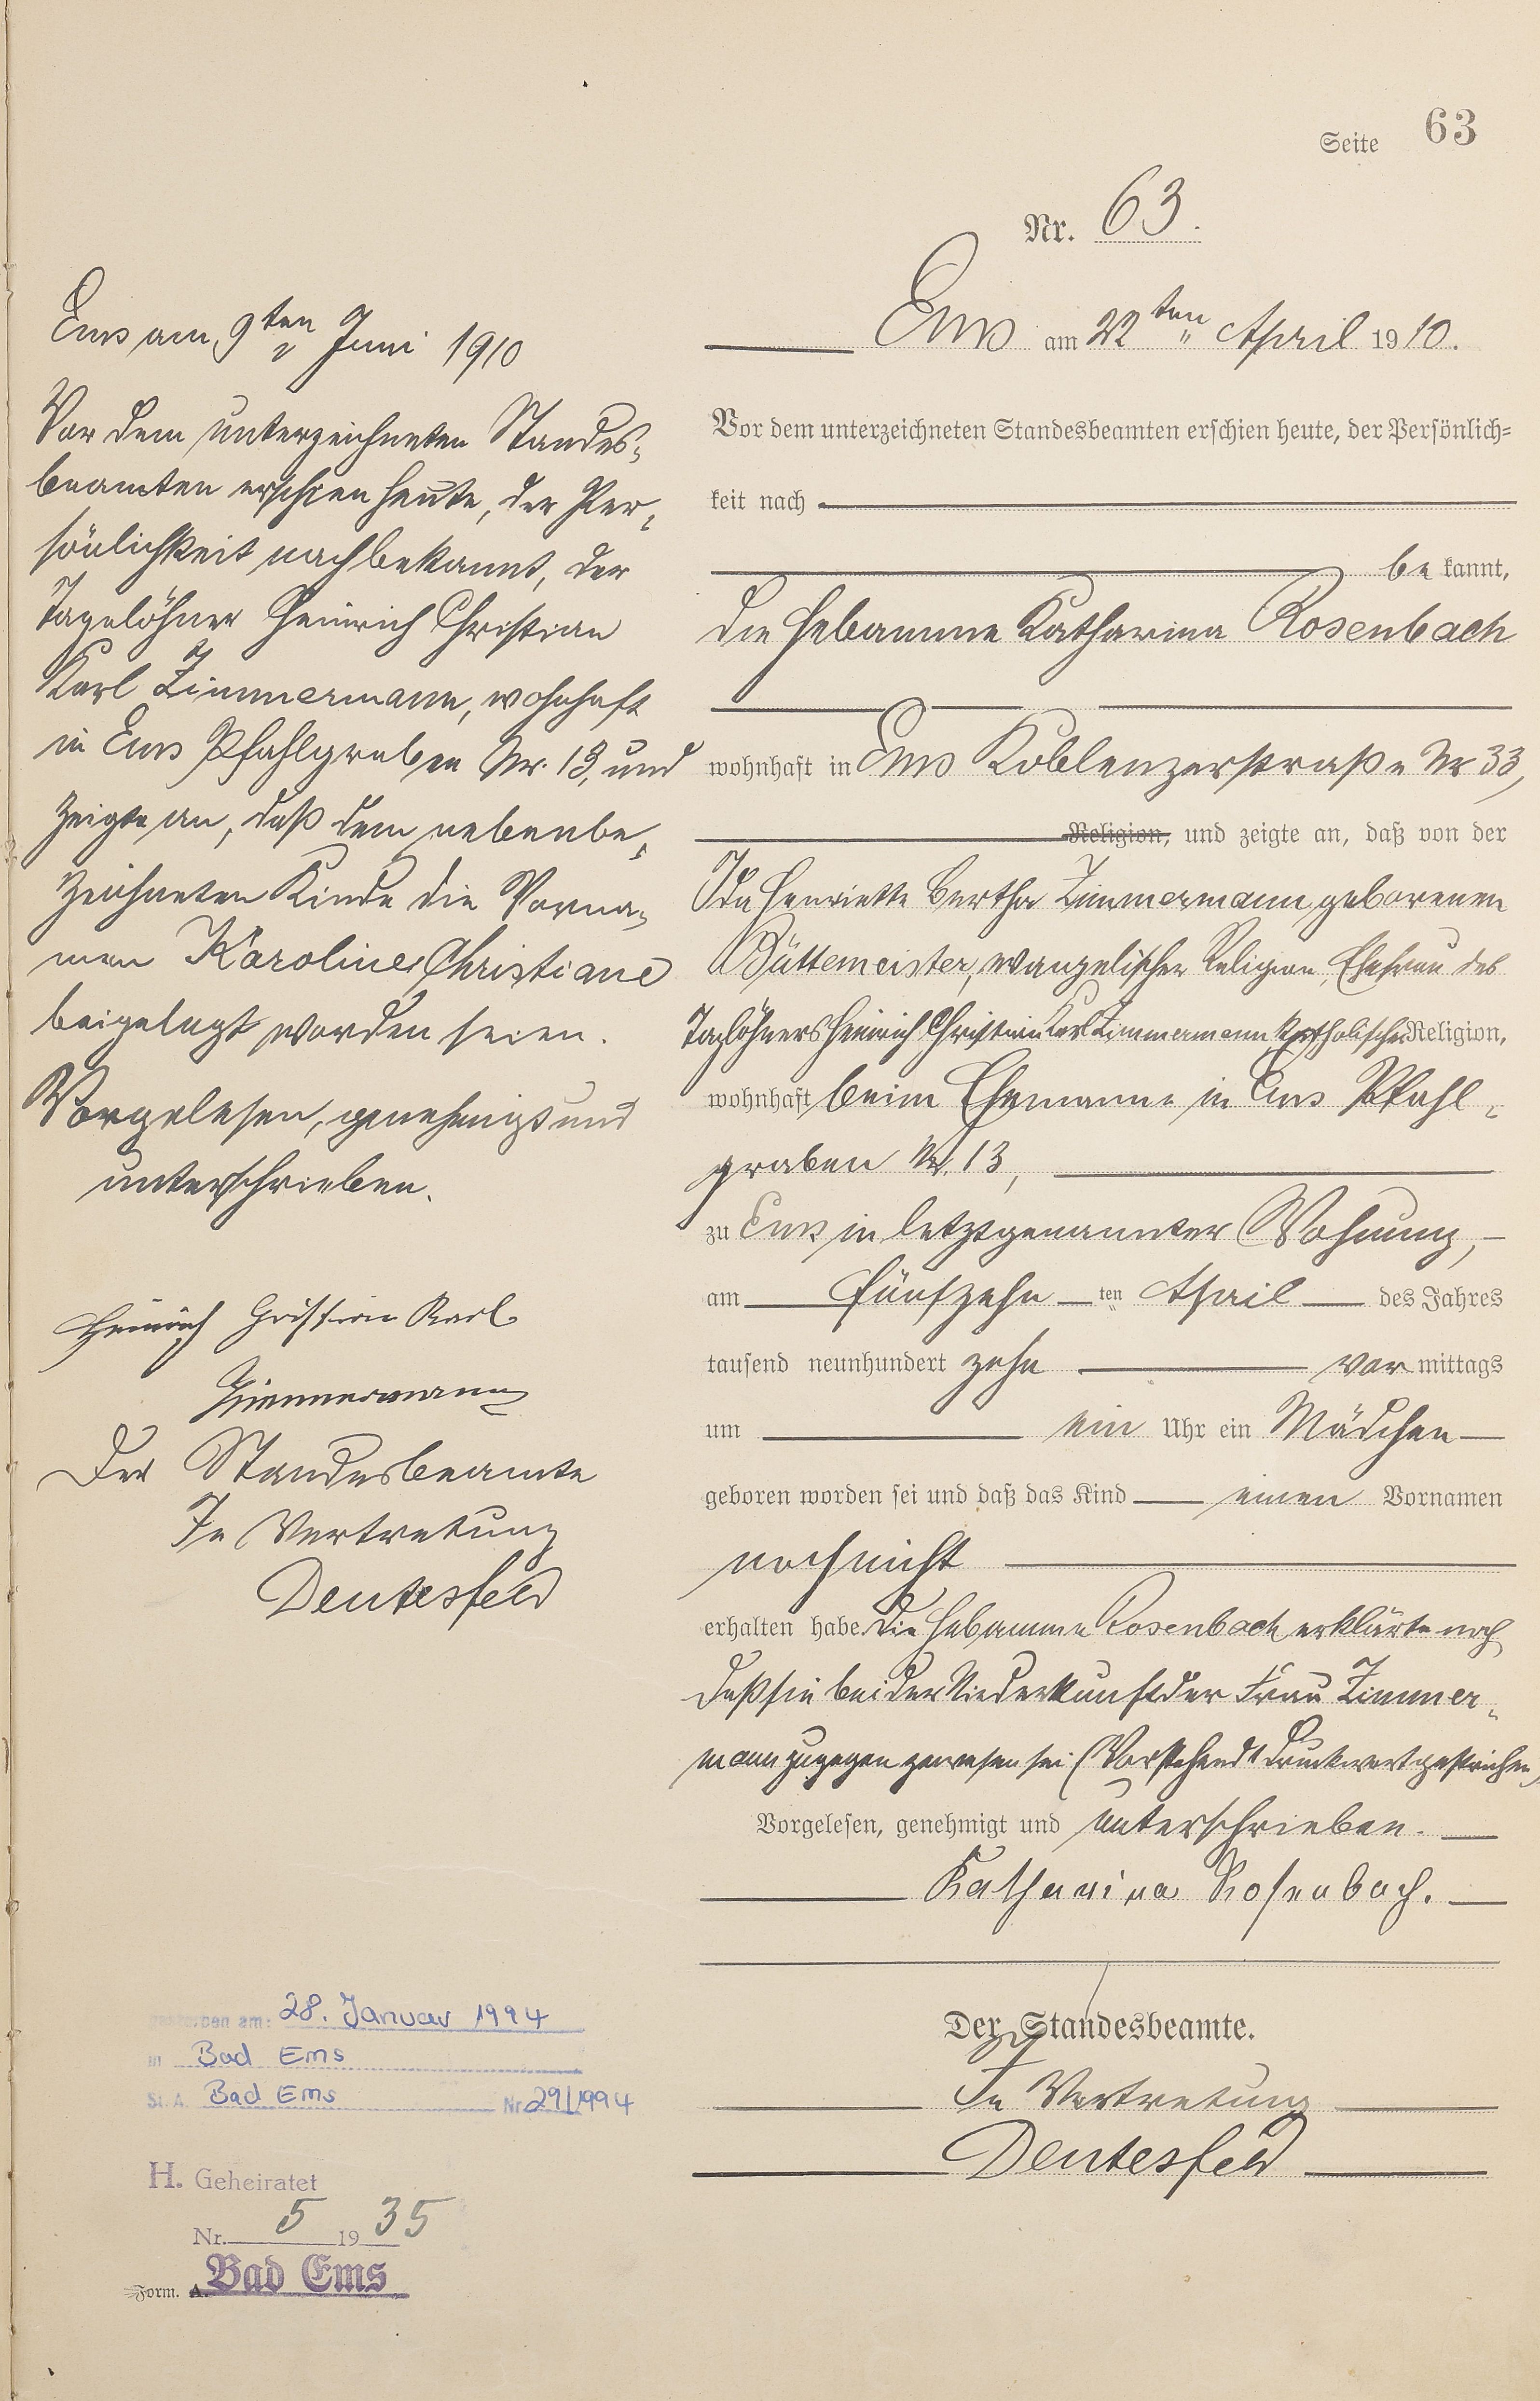 Seite 63
Nr. 63.
Ems am 22ten April 1910.
Vor dem unterzeichneten Standesbeamten erschien heute, der Persönlich-
keit nach
be kannt,
die Hebamme Katharina Rosenbach
wohnhaft in Ems Koblenzerstraße Nr 33,
Religion, und zeigte an, daß von der
Ida Henriette Bertha Zimmermann geborenen
Büttemeister, evangelischer Religion, Ehefrau des
Taglöhners Heinrich Christian Karl Zimmermann katholischer Religion,
wohnhaft beim Ehemanne in Ems Pfahl-
graben Nr. 13,
zu Ems in letztgenannter Wohnung,
am fünfzehn ten April des Jahres
tausend neunhundert zehn vor mittags
um ein Uhr ein Mädchen
geboren worden sei und daß das Kind einen Vornamen
noch nicht
erhalten habe. Die Hebamme Rosenbach erklärte noch
daß sie bei der Niederkunft der Frau Zimmer-
mann zugegen gewesen sei (Vorstehend 1 Druckwort gestrichen)
Vorgelesen, genehmigt und unterschrieben.
Katharina Rosenbach.
Der Standesbeamte.
In Vertretung
Deutesfeld
Ems am 9ten Juni 1910
Vor dem unterzeichneten Standes-
beamten erschien heute, der Per-
sönlichkeit nach bekannt, der
Tagelöhner Heinrich Christian
Karl Zimmermann, wohnhaft
in Ems Pfahlgraben Nr. 13, und
zeigte an, daß dem nebenbe-
zeichneten Kinde die Vorna-
men Karoline Christiane
beigelegt worden seien.
Vorgelesen, genehmigt und
unterschrieben.
Heinrich Christian Karl
Zimmermann
Der Standesbeamte
In Vertretung
Deutesfeld
gestorben am: 28. Januar 1994
in Bad Ems
St. A. Bad Ems Nr 29/1994
H. Geheiratet
Nr. 5 1935
Form. A. Bad Ems